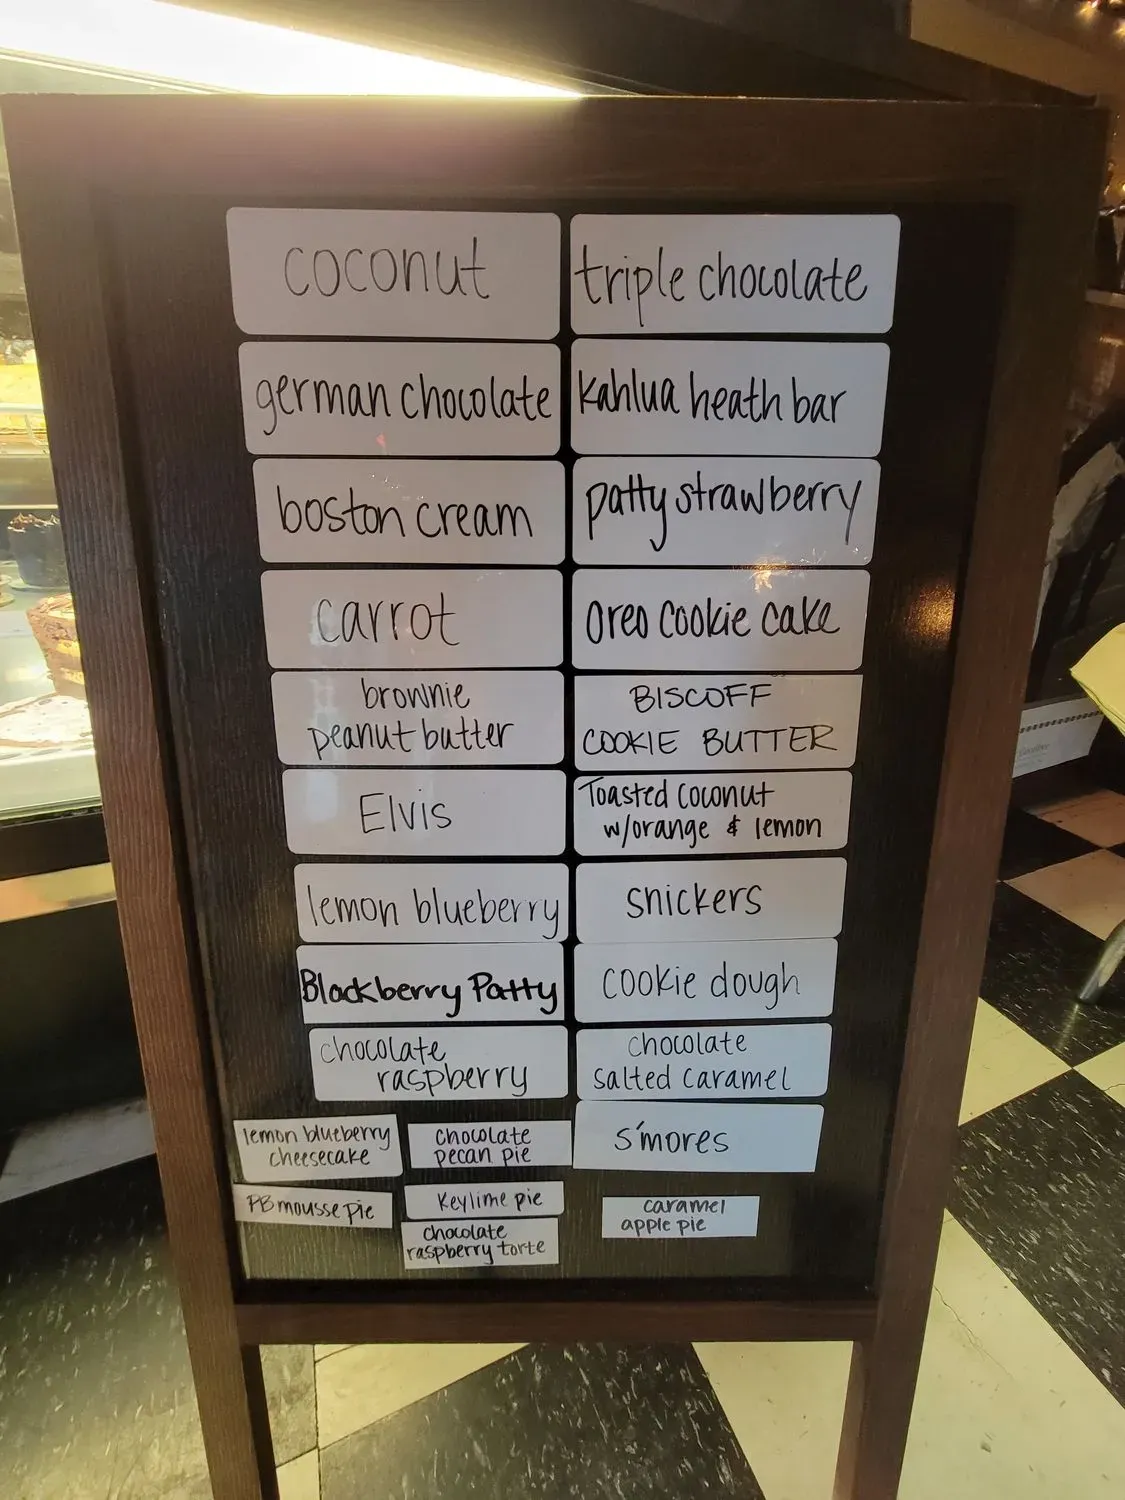 coconut
triple chocolate
german chocolate
kahlua heath bar
boston cream
patty strawberry
carrot
oreo cookie cake
brownie
peanut butter
BISCOFF
COOKIE BUTTER
Elvis
Toasted coconut
w/orange & lemon
lemon blueberry
snickers
Blackberry Patty
cookie dough
chocolate
raspberry
chocolate
salted caramel
s'mores
lemon blueberry
cheesecake
chocolate
pecan pie
PB mousse pie
Keylime pie
chocolate
raspberry torte
caramel
apple pie